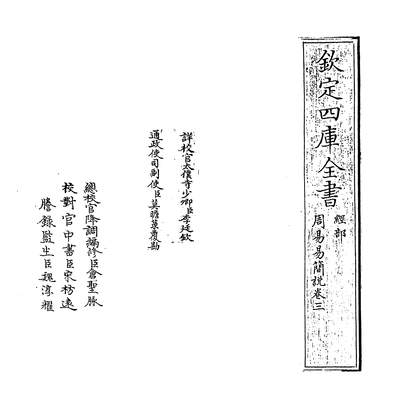 欽定四庫全書
經部
周易易簡說卷三
詳校官太僕寺少卿臣李廷欽
通政使司副使臣莫瞻菉覆勘
總校官降調編修臣倉聖脉
校對官中書臣宋枋遠
謄錄監生臣魏淳耀